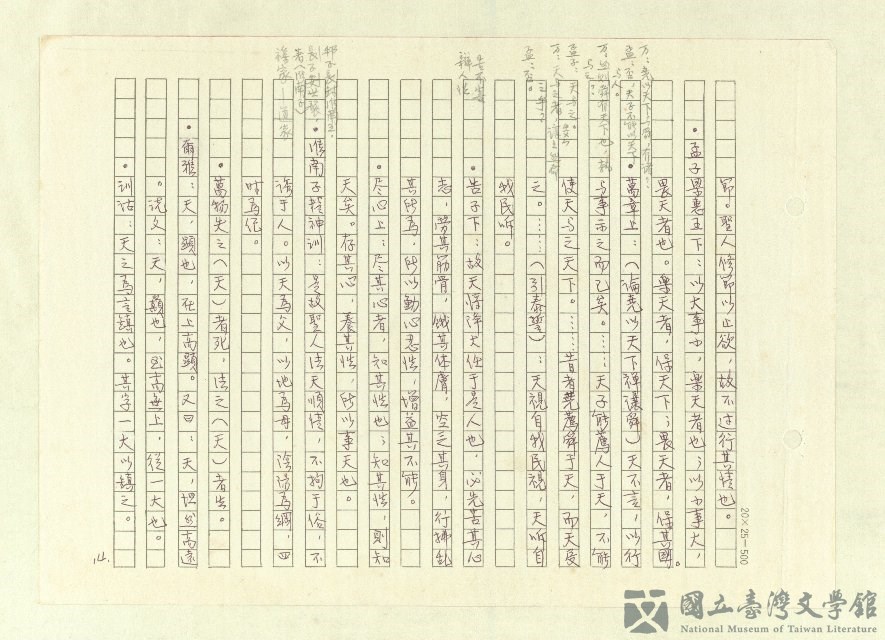 節。聖人修節以止欲，故不过行其情也。
•孟子梁惠王下：以大事小，樂天者也；以小事大，
畏天者也。樂天者，保天下；畏天者，保其國。
•萬章上：（論堯以天下禅讓舜）天不言，以行
与事示之而已矣。……天子能薦人于天，不能
使天与之天下。……昔者堯薦舜于天，而天受
之。……（引泰誓）：天視自我民視，天听自
我民听。
•告子下：故天将降大任于是人也，必先苦其心
志，劳其筋骨，餓其体膚，空乏其身，行拂乱
其所為，所以動心忍性，增益其所不能。
•尽心上：尽其心者，知其性也；知其性，則知
天矣。存其心，養其性，所以事天也。
•淮南子精神訓：是故聖人法天順情，不拘于俗，不
誘于人。以天為父，以地為母，陰陽為綱，四
时為紀。
•萬物失之（天）者死，法之（天）者生。
•爾雅：天，顯也，在上高顯。又曰：天，坦也，高遠
。說文：天，顛也，至高無上，從一大也。
•訓詁：天之為言鎮也。其字一大以鎮之。
14.
万：堯以天下与舜，有諸：
孟：否，天子不能以天下
与人。
天与之。
邦下
淮南子
道家
20×25=500
國立臺灣文學館
National Museum of Taiwan Literature